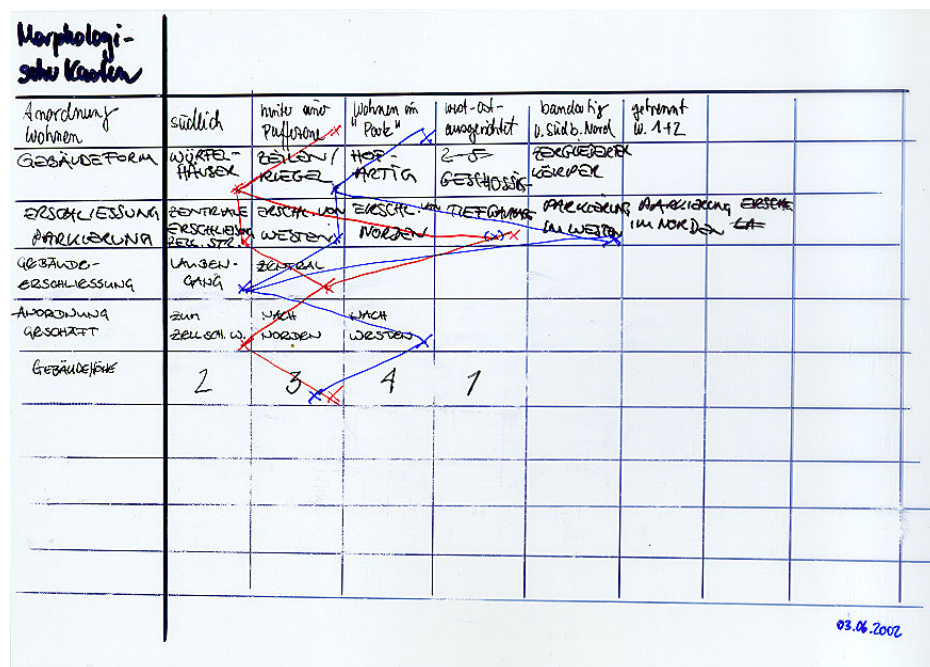 Morphologi-
scher Kasten
Anordnung
Wohnen
südlich
hinter einer
Pufferzone
Wohnen im
"Park"
west-ost-
ausgerichtet
bandartig
v. Süd b. Nord
getrennt
W. 1+2
GEBÄUDEFORM
WÜRFEL-
HÄUSER
ZEILEN/
RIEGEL
HOF-
ARTIG
2-5-
GESCHOSSIG
KÖRPER
ERSCHLIESSUNG
PARKIERUNG
ZENTRALE
ERSCHLIESSUNG
ZELL. STR.
ERSCHL. VON
WESTEN
ERSCHL. VON
NORDEN
TIEFGARAGE
(x)
PARKIERUNG
IM WESTEN
PARKIERUNG
IM NORDEN
GEBÄUDE-
ERSCHLIESSUNG
LAUBEN-
GANG
ZENTRAL
ANORDNUNG
GESCHÄFT
ZUM
ZELL.SCH.W.
NACH
NORDEN
NACH
WESTEN
GEBÄUDEHÖHE
2
3
4
1
03.06.2002